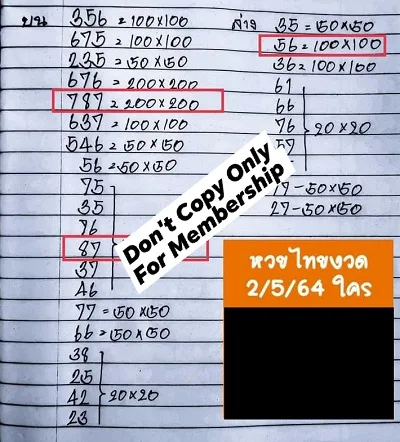 บน
356 = 100x100
675 = 100x100
235 = 50x50
676 = 200x200
787 = 200x200
637 = 100x100
546 = 50x50
56 = 50x50
75
35
76
87
37
46
77 = 50x50
66 = 50x50
38
25
42 20x20
23
ล่าง
35 = 50x50
56 = 100x100
36 = 100x100
61
66
76 20x20
57
77 - 50x50
27 - 50x50
Don't Copy Only
For Membership
หวยไทยงวด
2/5/64 ใคร